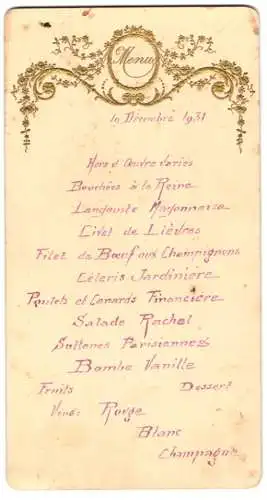 Menu
10 Décembre 1931
Hors d'Œuvre Variés
Bouchées à la Reine
Langouste Mayonnaise
Civet de Lièvres
Filet de Bœuf aux Champignons
Céleris Jardinière
Poulets et Canards Financière
Salade Rachel
Sultanes Parisiennes
Bombe Vanille
Fruits Dessert
Vins: Rouge
Blanc
Champagne